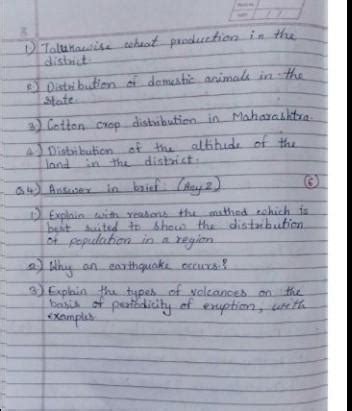 1) Talukawise wheat production in the
district.
2) Distribution of domestic animals in the
State.
3) Cotton crop distribution in Maharashtra.
4) Distribution of the altitude of the
land in the district.
Q.4) Answer in brief: (Any 2) (6)
1) Explain with reasons the method which is
best suited to show the distribution
of population in a region
2) Why an earthquake occurs?
3) Explain the types of volcanoes on the
basis of periodicity of eruption, with
examples.